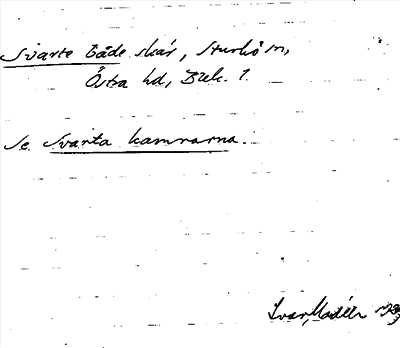 Svarte Både skär, Sturkö sn,
Östra hd, Blek. l.
Se Svarta kamrarna.
Ivar Modéer